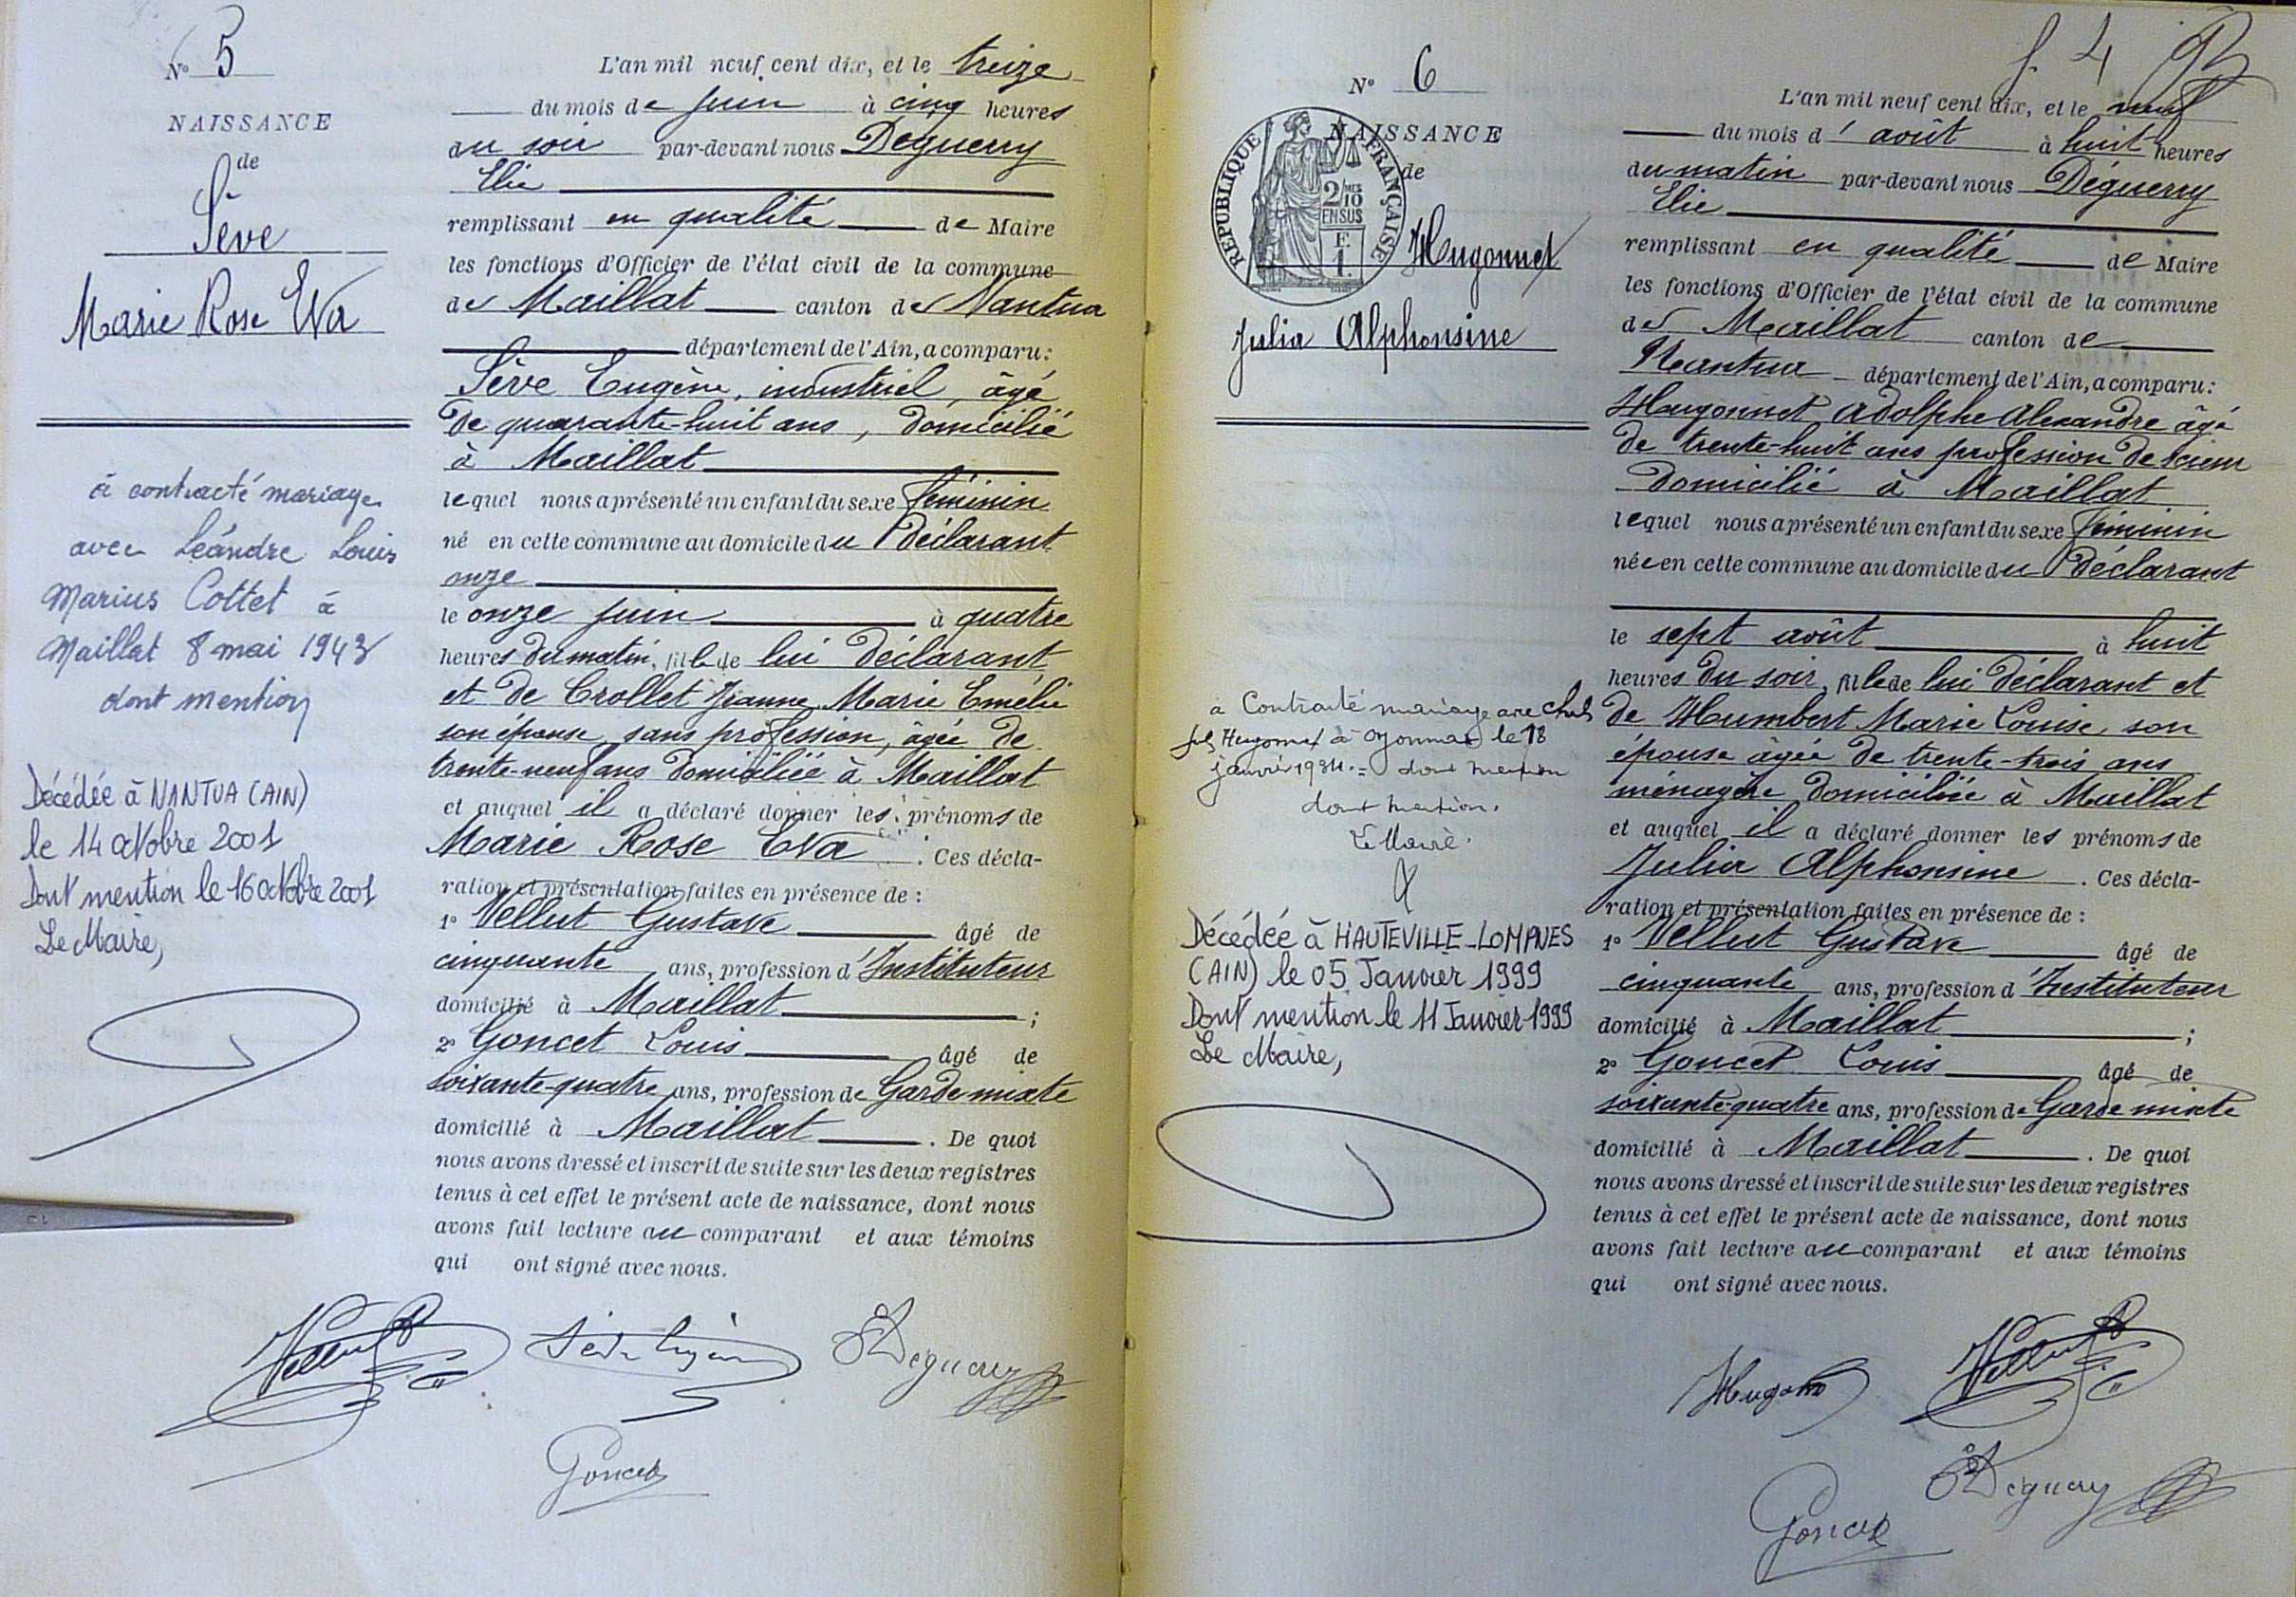 N° 5
NAISSANCE
de
Sève
Marie Rose Eva
à contracté mariage
avec Léandre Louis
Marius Cottet à
Maillat 8 mai 1943
dont mention
Décédée à NANTUA (AIN)
le 14 octobre 2001
Dont mention le 16 octobre 2001
Le Maire,
L'an mil neuf cent dix, et le treize
du mois de juin à cinq heures
du soir par-devant nous Déguerry
Elie
remplissant en qualité de Maire
les fonctions d'Officier de l'état civil de la commune
de Maillat canton de Nantua
département de l'Ain, a comparu:
Sève Eugène, industriel, âgé
de quarante-huit ans, domicilié
à Maillat
lequel nous a présenté un enfant du sexe féminin
né en cette commune au domicile du déclarant
onze
le onze juin à quatre
heures du matin, fille de lui déclarant
et de Crollet Jeanne Marie Emélie
son épouse, sans profession, âgée de
trente-neuf ans domiciliée à Maillat
et auquel il a déclaré donner les prénoms de
Marie Rose Eva . Ces décla-
ration et présentation faites en présence de :
1° Vellut Gustave âgé de
cinquante ans, profession d'Instituteur
domicilié à Maillat ;
2° Goncet Louis âgé de
soixante-quatre ans, profession de Garde-mixte
domicilié à Maillat . De quoi
nous avons dressé et inscrit de suite sur les deux registres
tenus à cet effet le présent acte de naissance, dont nous
avons fait lecture au comparant et aux témoins
qui ont signé avec nous.
Vellut Sève Eugène E Deguerry
Goncet
f. 4
N° 6
NAISSANCE
de
RÉPUBLIQUE FRANÇAISE
2/10 MES
EN SUS
Hugonnet
Julia Alphonsine
a Contracté mariage avec Chales
Hugonnet à Oyonnax le 18
janvier 1934.= dont mention
dont mention.
Le Maire.
Décédée à HAUTEVILLE-LOMPNES
(AIN) le 05 Janvier 1999
Dont mention le 11 Janvier 1999
Le Maire,
L'an mil neuf cent dix, et le neuf
du mois d'août à huit heures
du matin par-devant nous Déguerry
Elie
remplissant en qualité de Maire
les fonctions d'Officier de l'état civil de la commune
de Maillat canton de
Nantua département de l'Ain, a comparu:
Hugonnet Adolphe Alexandre âgé
de trente-huit ans profession de scieur
domicilié à Maillat
lequel nous a présenté un enfant du sexe féminin
née en cette commune au domicile du déclarant
le sept août à huit
heures du soir, fille de lui déclarant et
de Humbert Marie Louise, son
épouse âgée de trente-trois ans
ménagère domiciliée à Maillat
et auquel il a déclaré donner les prénoms de
Julia Alphonsine . Ces décla-
ration et présentation faites en présence de :
1° Vellut Gustave âgé de
cinquante ans, profession d'Instituteur
domicilié à Maillat ;
2° Goncet Louis âgé de
soixante-quatre ans, profession de Garde mixte
domicilié à Maillat . De quoi
nous avons dressé et inscrit de suite sur les deux registres
tenus à cet effet le présent acte de naissance, dont nous
avons fait lecture au comparant et aux témoins
qui ont signé avec nous.
Hugonnet Vellut
E Deguerry
Goncet